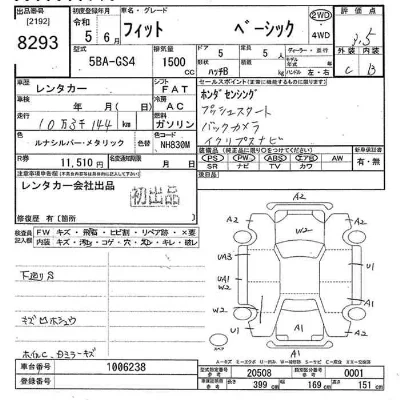 出品番号
[2192]
8293
初度登録年月
令和 5年 6月
車名・グレード
フィット ベーシック
2WD
・
4WD
評価点
3.5
型式
5BA-GS4
排気量
1500
CC
ドア
5
形状
ハッチB
定員
5 人
ディーラー・並行
ハンドル 左・右
外装 内装
C B
車歴
レンタカー
年 月 日
シフト
FAT
冷房
AC
セールスポイント
ホンダセンシング
プッシュスタート
バックカメラ
イクリプスナビ
走行
10万3千144 km
燃料
ガソリン
色
ルナシルバー・メタリック
色コード
NH830M
R券
11,510 円
名変期限
月 日
装備品 (純正品に限り○を付ける)
PS PW ABS エアB AW
SR ナビ TV カワ
新車保証書
有・無
注意事項申告
レンタカー会社出品
初出品
後日品
修復歴 有 (箇所 )
検査員
FW キズ・飛石・ヒビ割・リペア跡・×要
内装 キズ・汚れ・コゲ・穴・ヌレ・ワレ・破れ
下廻りS
キズ凹ホシュウ
ホイルC. Dミラーキズ
A2
A2
W2
UA3
UA1
W2
U1
U1
A1
A2
A2
A1
車台番号
1006238
登録番号
型式指定番号
20508
類別区分番号
0001
長さ
399 cm
幅
169 cm
高さ
151 cm